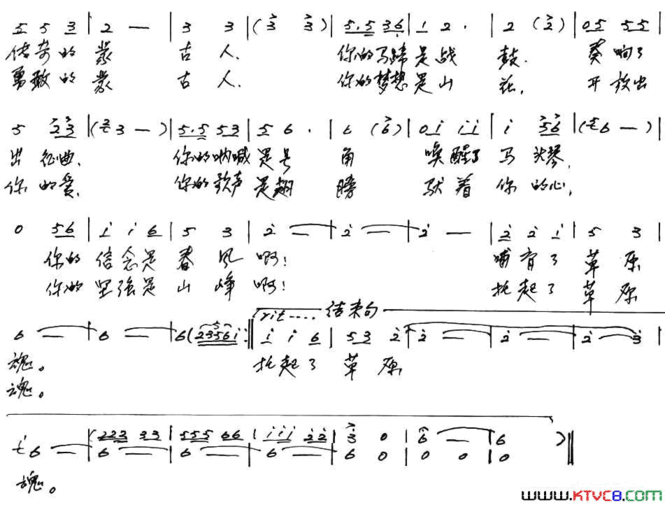 5 5 3 | 2 — | 3 3 | (3 3) | 5.5 3 6 | 1 2 . | 2 (2) | 0 5 5 5 |
传奇的蒙 古人. 你的马蹄是战 鼓. 奏响了
勇敢的蒙 古人. 你的梦想是山 花, 开放出
5 2 3 | 3 — ) | 5.5 5 3 | 5 6 . | 6 (6) | 0 i i i | i 5 6 | 6 — )
出征曲, 你的呐喊是号 角 唤醒了 马头琴,
你的爱, 你的歌声是翅 膀 驮着 你的心,
0 5 6 | i i 6 | 5 3 | 2 — | 2 — | 2 — | 2 2 i | 5 3 |
你的 信念是 春风 啊! 哺育了 草原
你的 坚强是 山峰 啊! 托起了 草原
6 — | 6 — | 6 (2 3 5 6 i :‖ rit.... 结束句 i i 6 | 5 3 2 | 2 — | 2 — | 2 3 |
魂。 托起了 草 原
魂。
6 — | (2 2 3 3 3 | 5 5 5 6 6 | i i i 2 2 | 3 0 | 6 — | 6 ) ‖
6 — | 6 — | 6 — | 6 0 | 0 0 | 0
魂。
www.KTVC8.com